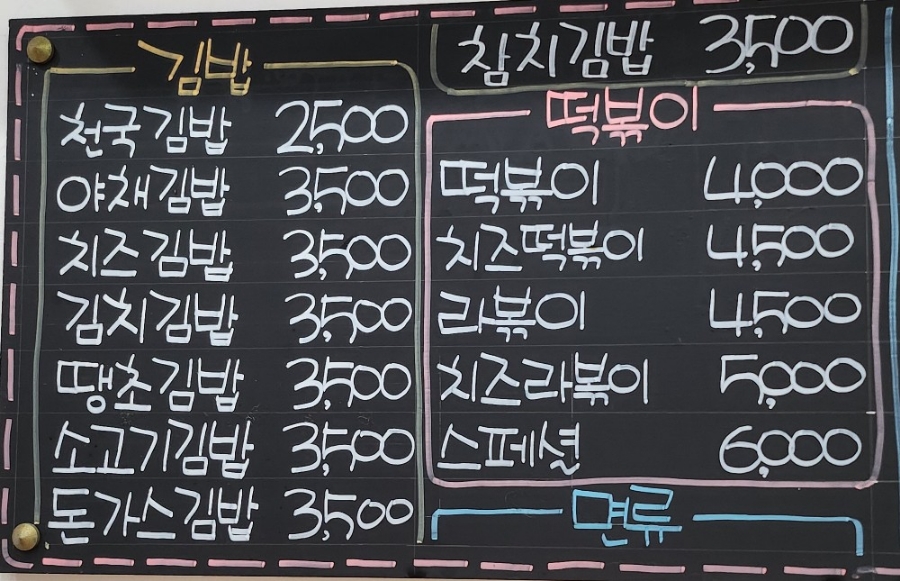 김밥
천국김밥 2,500
야채김밥 3,500
치즈김밥 3,500
김치김밥 3,500
땡초김밥 3,500
소고기김밥 3,500
돈가스김밥 3,500
참치김밥 3,500
떡볶이
떡볶이 4,000
치즈떡볶이 4,500
라볶이 4,500
치즈라볶이 5,000
스페셜 6,000
면류